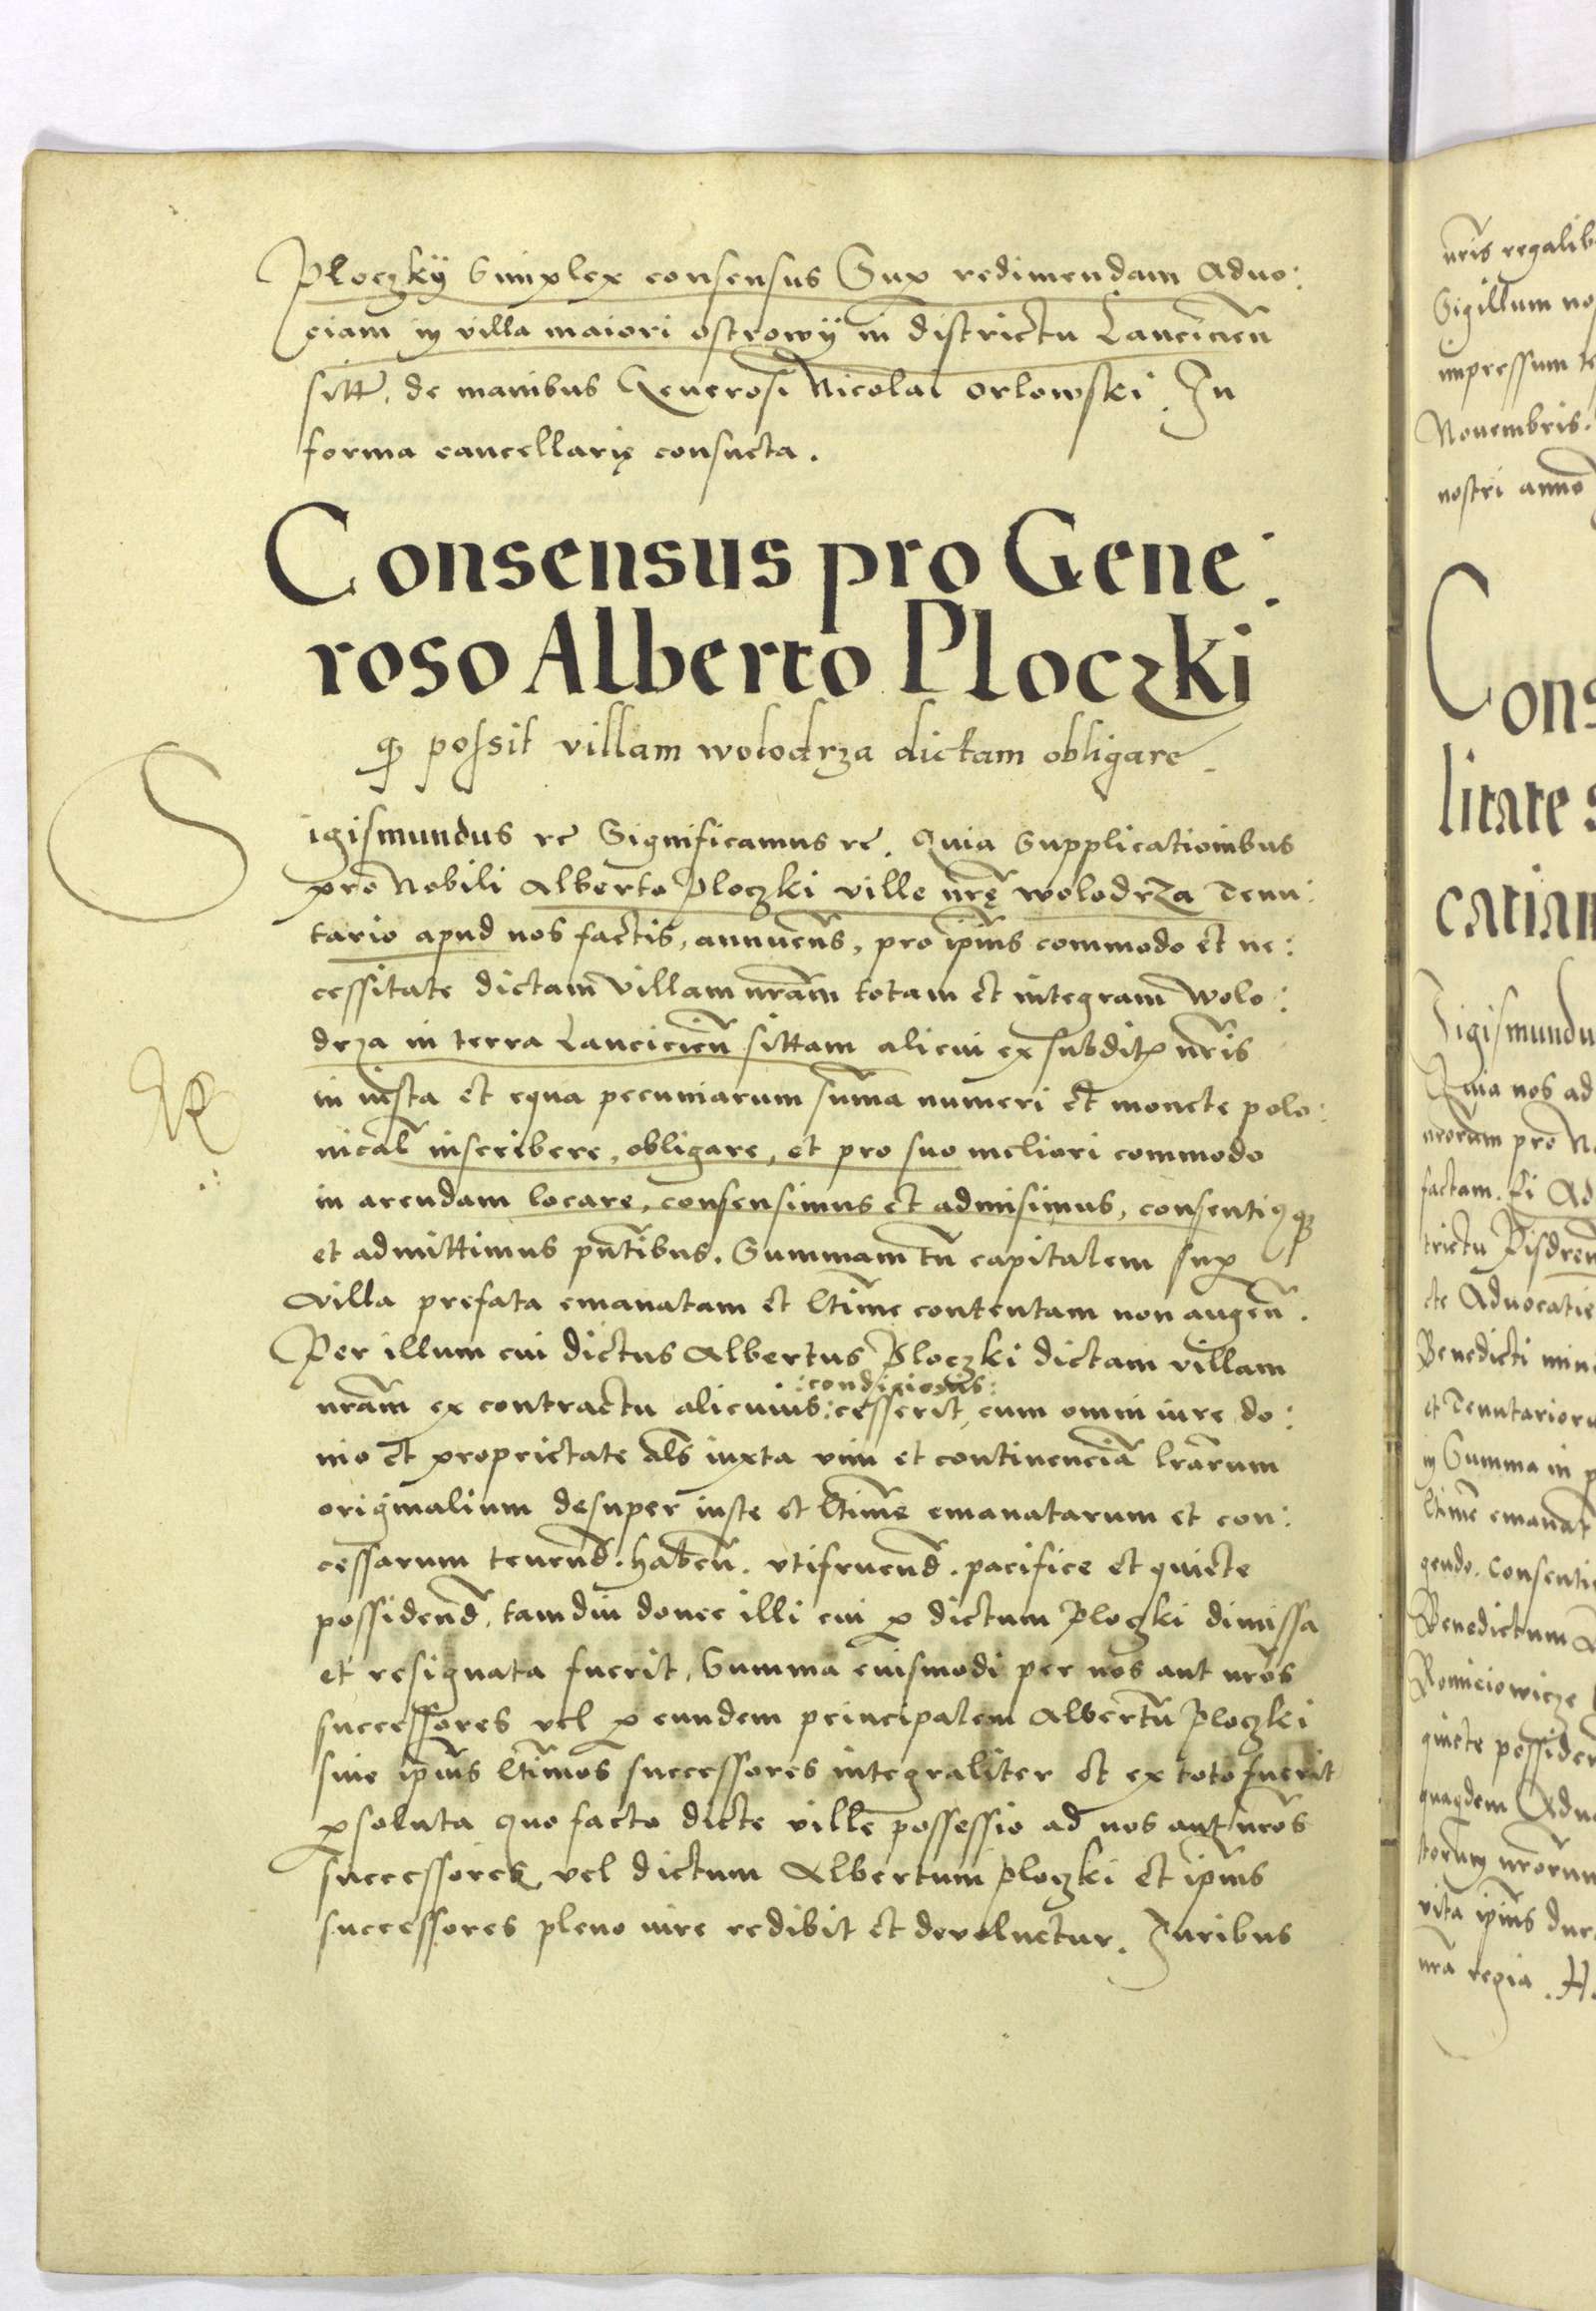 Ploczkÿ Simplex consensus Suꝑ redimendam Aduo:
ciam in villa maiori ostrowÿ in districtu Lancicieñ
sitt̃. de manibus Generosi Nicolai Orlowski. In
forma cancellarię consueta.
Consensus pro Gene:
roso Alberto Ploczki
ꝙ possit villam wolodrza dictam obligare.
Sigismundus ꝛc Significamus ꝛc. Quia Supplicationibus
pro Nobili Alberto Ploczki ville nrę̃ wolodrza Tenu:
tario apud nos factis, annuentẽs, pro ip̃ius commodo et ne:
cessitate dictam villam nrãm totam et integram Wolo:
drza in terra Lancicieñ sittam alicui ex subditꝭ nrĩs
in iusta et equa pecuniarum sum̃a numeri et monete polo:
nicaĺ inscribere, obligare, et pro suo meliori commodo
in arendam locare, consensimus et admisimus, consentiꝰqꝫ
et admittimus pñtibus. Summam tñ capitalem suꝑ
villa prefata emanatam et ltĩme contentam non augeñ.
Per illum cui dictus Albertus Ploczki dictam villam
:condicionis:
nrãm ex contractu alicuius: cesserit, cum omni iure do:
nio et proprietate aĺs iuxta vim et continenciã lrãrum
originalium desuper iuste et ltĩme emanatarum et con:
cessarum tenend̃. habeñ. vtifruend̃. pacifice et quiete
possidend̃, tamdiu donec illi cui ꝑ dictum Ploczki dimissa
et resignata fuerit, Summa eiusmodi per nos aut nrõs
successores vel ꝑ eundem principalem Albertũ Ploczki
siue ip̃ius ltĩmos successores integraliter et ex toto fuerit
ꝑsoluta quo facto dicte ville possessio ad nos aut nrõs
successores vel dictum Albertum Ploczki et ip̃ius
successores pleno iure redibit et deuoluetur. Iuribus
nrĩs regalib
Sigillum no
impressum
Nouembris.
nostri anno
Cons
litate
catiam
Sigismundu
Quia nos ad
factam.
trictu Pisdreñ
cte Aduocatie
Benedicti
et Tenutarioru
in Summa in
ltĩme emanat
gendo. Consenti
Benedictum
quiete possiden
quaqdem Aduo
vita ip̃ius
nrã regia.